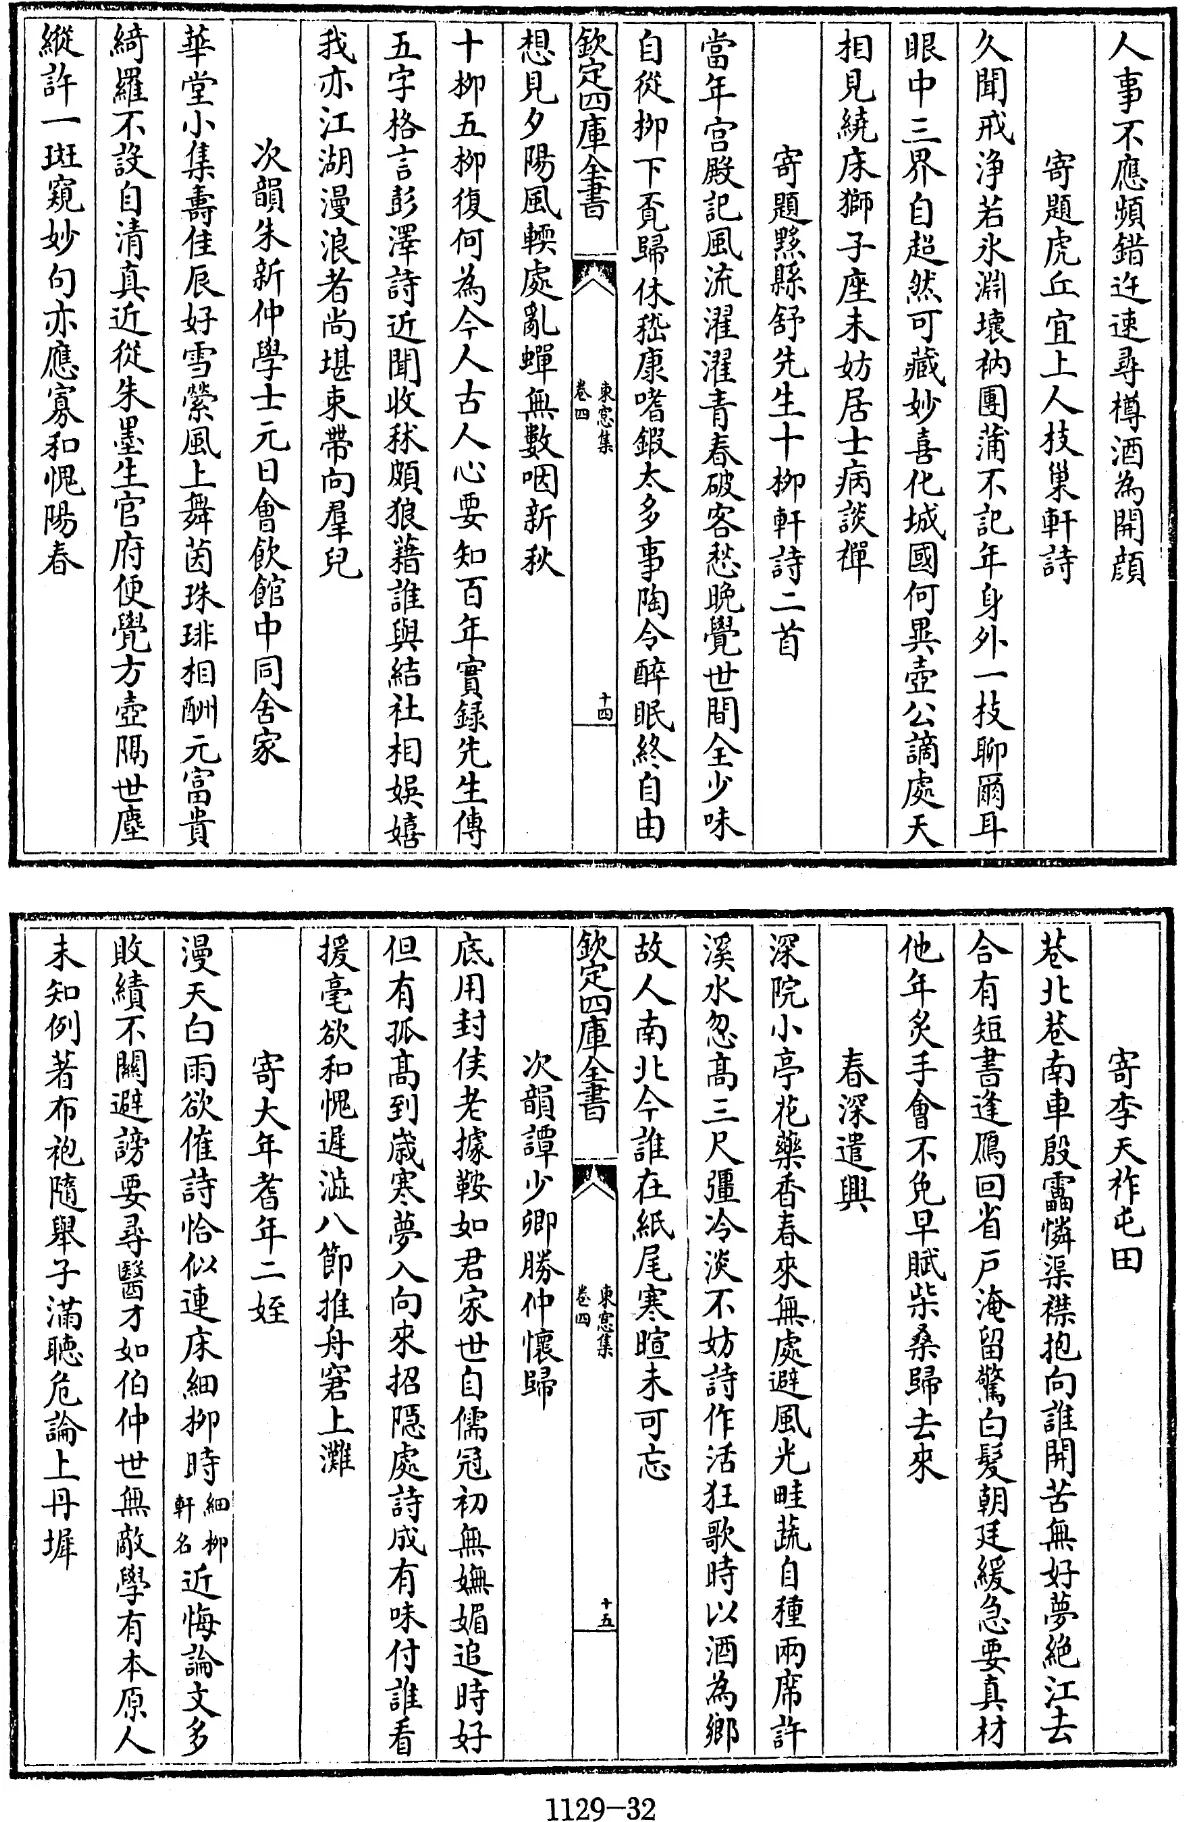 人事不應頻錯迕速尋樽酒為開顔
寄題虎丘宜上人技巢軒詩
久聞戒净若氷淵壊衲團蒲不記年身外一技聊爾耳
眼中三界自超然可藏妙喜化城國何異壺公謫處天
相見繞床獅子座未妨居士病談禪
寄題黟縣舒先生十栁軒詩二首
當年宫殿記風流濯濯青春破客愁晩覺世間全少味
自從栁下覓歸休嵇康嗜鍜太多事陶令醉眠終自由
欽定四庫全書
東窓集
卷四
十四
想見夕陽風輭處亂蟬無數咽新秋
十栁五栁復何為今人古人心要知百年實録先生傳
五字格言彭澤詩近聞收秫頗狼藉誰與結社相娱嬉
我亦江湖漫浪者尚堪束帶向羣兒
次韻朱新仲學士元日會飲館中同舍家
華堂小集壽佳辰好雪縈風上舞茵珠琲相酬元富貴
綺羅不設自清真近從朱墨生官府便覺方壺隔世塵
縱許一斑窺妙句亦應寡和愧陽春
寄李天祚屯田
巷北巷南車殷靁憐渠襟抱向誰開苦無好夢絶江去
合有短書逢鴈回省戸淹留驚白髪朝廷緩急要真材
他年炙手會不免早賦柴桑歸去來
春深遣興
深院小亭花藥香春來無處避風光畦蔬自種兩席許
溪水忽髙三尺彊冷淡不妨詩作活狂歌時以酒為鄉
故人南北今誰在紙尾寒暄未可忘
欽定四庫全書
東窓集
卷四
十五
次韻譚少卿勝仲懷歸
底用封侯老據鞍如君家世自儒冠初無嫵媚追時好
但有孤髙到嵗寒夢入向來招隱處詩成有味付誰看
援毫欲和愧遲澁八節推舟窘上灘
寄大年耆年二姪
漫天白雨欲催詩恰似連床細栁時細栁軒名近悔論文多
敗績不關避謗要尋醫才如伯仲世無敵學有本原人
未知例著布袍隨舉子滿聽危論上丹墀
1129-32